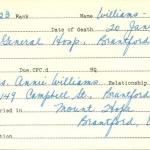 23 Rank Name Williams-
Date of death 20 Jan
General Hosp, Brantford
Dos. CPC.d HQ
s. Annie Williams. Relationship
49 Campbell St., Brantford
ried in Mount Hope
Brantford,